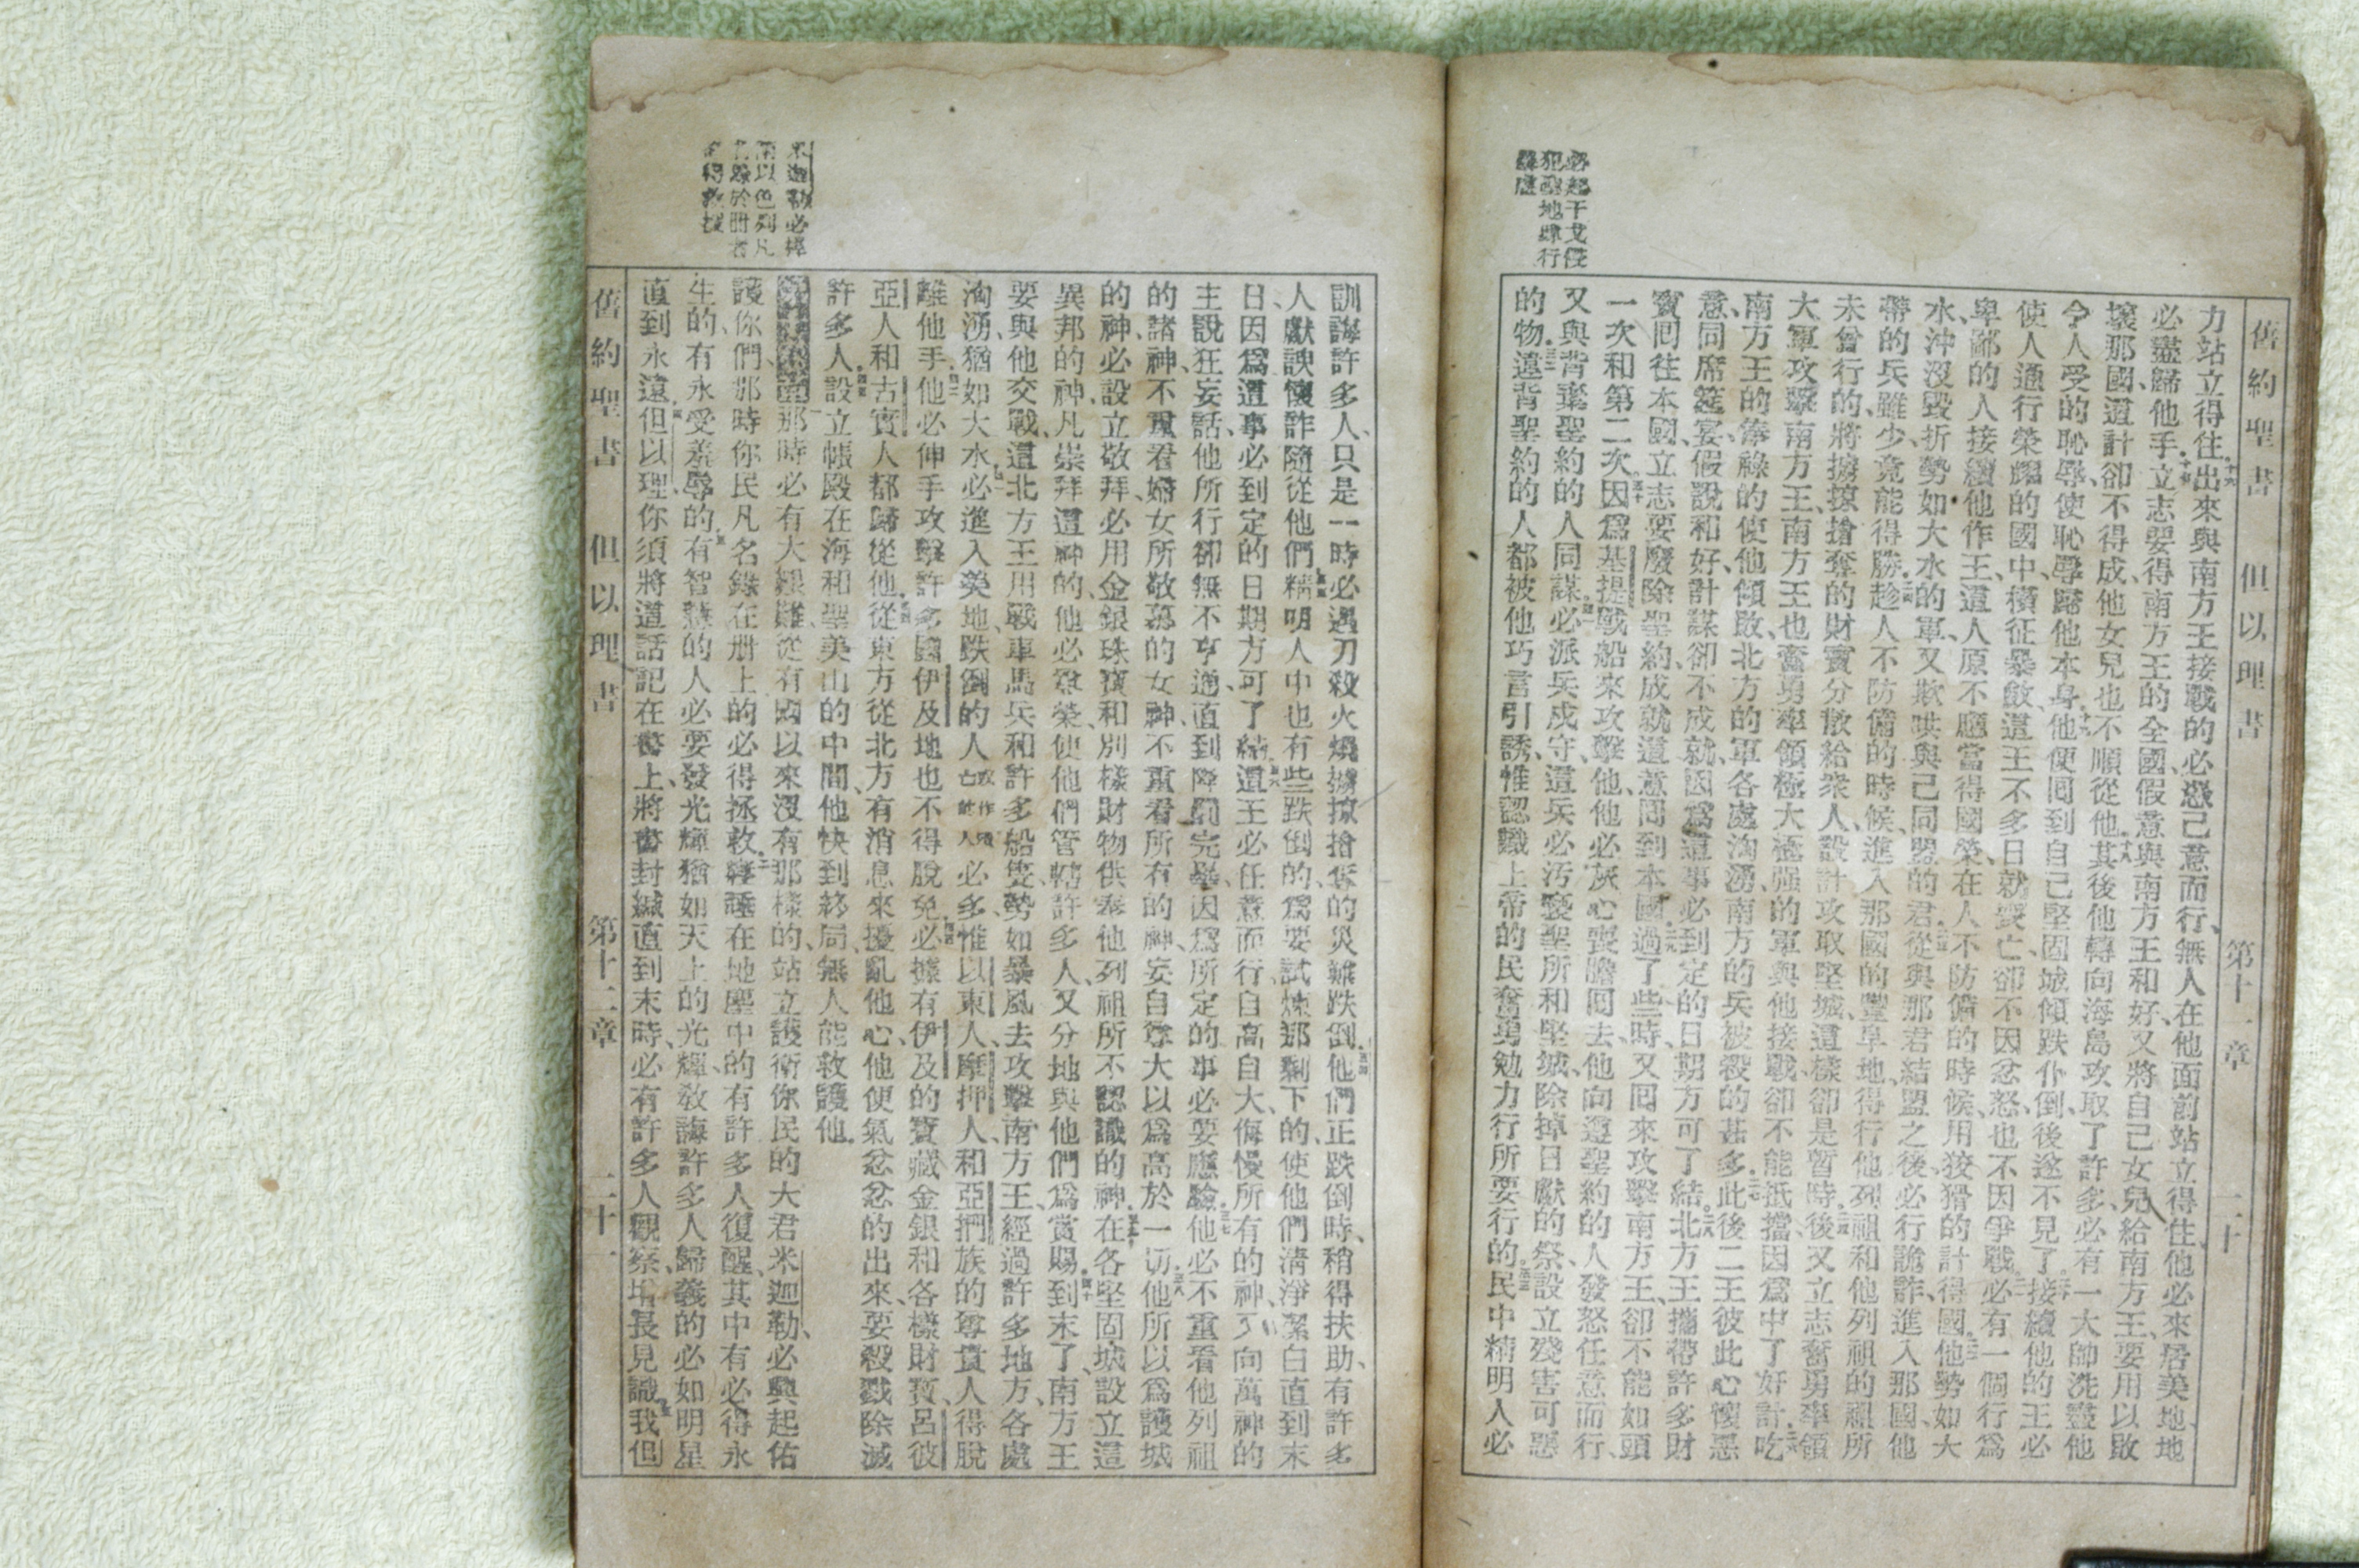 舊約聖書 但以理書 第十一章 二十
力站立得住出來與南方王接戰的必憑己意而行、無人在他面前站立得住、他必來居美地、地
必盡歸他手、立志要得南方王的全國、假意與南方王和好、又將自己女兒給南方王、要用以敗
壞那國、這計卻不得成、他女兒也不順從他、其後他轉向海島、攻取了許多、必有一大帥洗盡他
令人受的恥辱、使恥辱歸他本身、他便囘到自己堅固城、傾跌仆倒、後遂不見了、接續他的王必
使人通行榮耀的國中、橫征暴斂、這王不多日就喪亡、卻不因忿怒、也不因爭戰、必有一個行爲
卑鄙的人接續他作王、這人原不應當得國榮、在人不防備的時候、用狡猾的計得國、他勢如大
水、沖沒毀折勢如大水的軍、又欺哄與己同盟的君、從與那君結盟之後、必行詭詐、進入那國、他
帶的兵雖少、竟能得勝、趁人不防備的時候、進入那國的豐阜地、得行他列祖和他列祖的祖所
未曾行的、將擄掠搶奪的財寶分散給衆人、設計攻取堅城、這樣卻是暫時、後又立志奮勇率領
大軍攻擊南方王、南方王也奮勇率領極大極强的軍與他接戰、卻不能抵擋、因爲中了奸計、吃
南方王的俸祿的、使他傾敗、北方的軍各處淘湧、南方的兵被殺的甚多、此後二王彼此心懷惡
意、同席筵宴、假說和好、計謀卻不成就、因爲這事必到定的日期方可了結、北方王攜帶許多財
寶囘往本國、立志要廢除聖約、成就這意囘到本國、過了些時、又囘來攻擊南方王、卻不能如頭
一次和第二次、因爲基提戰船來攻擊他、他必灰心喪膽囘去、他向遵聖約的人發怒、任意而行、
又與背棄聖約的人同謀、必派兵戍守、這兵必汚褻聖所和堅城、除掉日獻的祭、設立殘害可惡
的物、違背聖約的人都被他巧言引誘、惟認識上帝的民奮勇勉力行所要行的、民中精明人必
必起干戈侵
犯聖地肆行
暴虐
訓誨許多人、只是一時必遇刀殺火燒擄掠搶奪的災難跌倒、他們正跌倒時、稍得扶助、有許多
人獻諛懷詐隨從他們、精明人中也有些跌倒的、爲要試煉那剩下的、使他們淸淨潔白直到末
日、因爲這事必到定的日期方可了結、這王必任意而行、自高自大、侮慢所有的神、又向萬神的
主說狂妄話、他所行卻無不亨通、直到降罰完畢、因爲所定的事必要應驗、他必不重看他列祖
的諸神、不重看婦女所敬慕的女神、不重看所有的神、妄自尊大以爲高於一切、他所以爲護城
的神、必設立敬拜、必用金銀珠寶和別樣財物供奉他列祖所不認識的神、在各堅固城設立這
異邦的神、凡崇拜這神的、他必尊榮、使他們管轄許多人、又分地與他們爲賞賜、到末了、南方王
要與他交戰、這北方王用戰車馬兵和許多船隻、勢如暴風去攻擊南方王、經過許多地方、各處
淘湧猶如大水、必進入美地、跌倒的人必多、惟以東人、摩押人、和亞捫族的尊貴人得脫
離他手、他必伸手攻擊許多國、伊及地也不得脫免、必據有伊及的寶藏金銀和各樣財寶、呂彼
亞人和古實人都歸從他、從東方從北方有消息來擾亂他心、他便氣忿忿的出來、要殺戮除滅
許多人、設立帳殿在海和聖美山的中間、他快到終局、無人能救護他、
那時必有大艱難、從有國以來沒有那樣的、站立護衛你民的大君米迦勒、必興起佑
護你們、那時你民凡名錄在册上的必得拯救、寢睡在地塵中的有許多人復醒、其中有必得永
生的、有永受羞辱的、有智慧的人必要發光輝、猶如天上的光輝、敎誨許多人歸義的必如明星
直到永遠、但以理、你須將這話記在書上、將書封緘直到末時、必有許多人觀察增長見識、我但
舊約聖書 但以理書 第十二章 二十一
米迦勒必捍
衛以色列凡
名錄於册者
必得救援